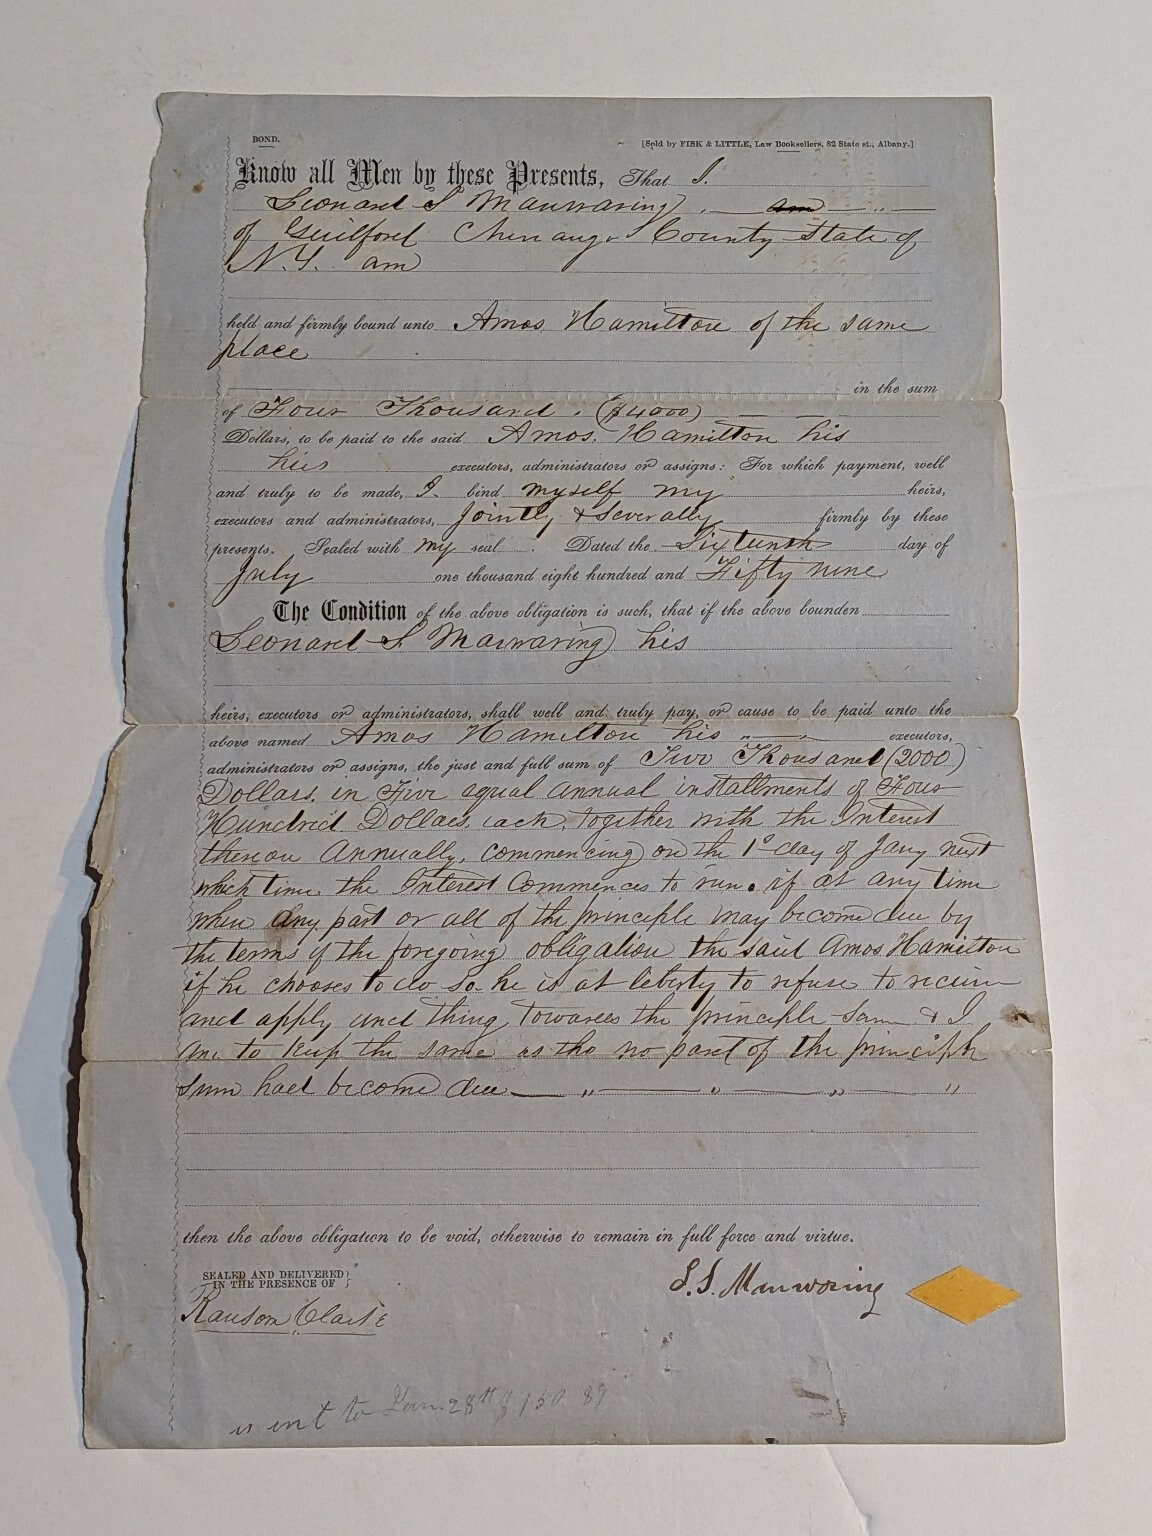 BOND.
[Sold by FISK & LITTLE, Law Booksellers, 82 State st., Albany.]
Know all Men by these Presents, That I.
Leonard S Manwaring am
of Guilford Chenango County State of
N.Y. am
held and firmly bound unto Amos Hamilton of the same
place
in the sum
of Four Thousand. ($4000)
Dollars, to be paid to the said Amos. Hamilton his
heirs executors, administrators or assigns: For which payment, well
and truly to be made, I bind myself my heirs,
executors and administrators, Jointly & Severally firmly by these
presents. Sealed with my seal. Dated the Sixteenth day of
July one thousand eight hundred and Fifty nine
The Condition of the above obligation is such, that if the above bounden
Leonard S Manwaring his
heirs, executors or administrators, shall well and truly pay, or cause to be paid unto the
above named Amos Hamilton his executors,
administrators or assigns, the just and full sum of Two Thousand (2000)
Dollars. in Five equal annual installments of Four
Hundred Dollars, each, together with the Interest
thereon Annually, commencing on the 1st day of Jany next
which time the Interest Commences to run. if at any time
when any part or all of the principle may become due by
the terms of the foregoing obligation the said Amos Hamilton
if he chooses to do so he is at liberty to refuse to receive
and apply thing towards the principle sum & I
am to keep the same as tho no part of the principle
sum had become due — " — " — " — "
then the above obligation to be void, otherwise to remain in full force and virtue.
SEALED AND DELIVERED }
IN THE PRESENCE OF }
L. S. Manwaring
Ransom Clark
int to Jan. 28th